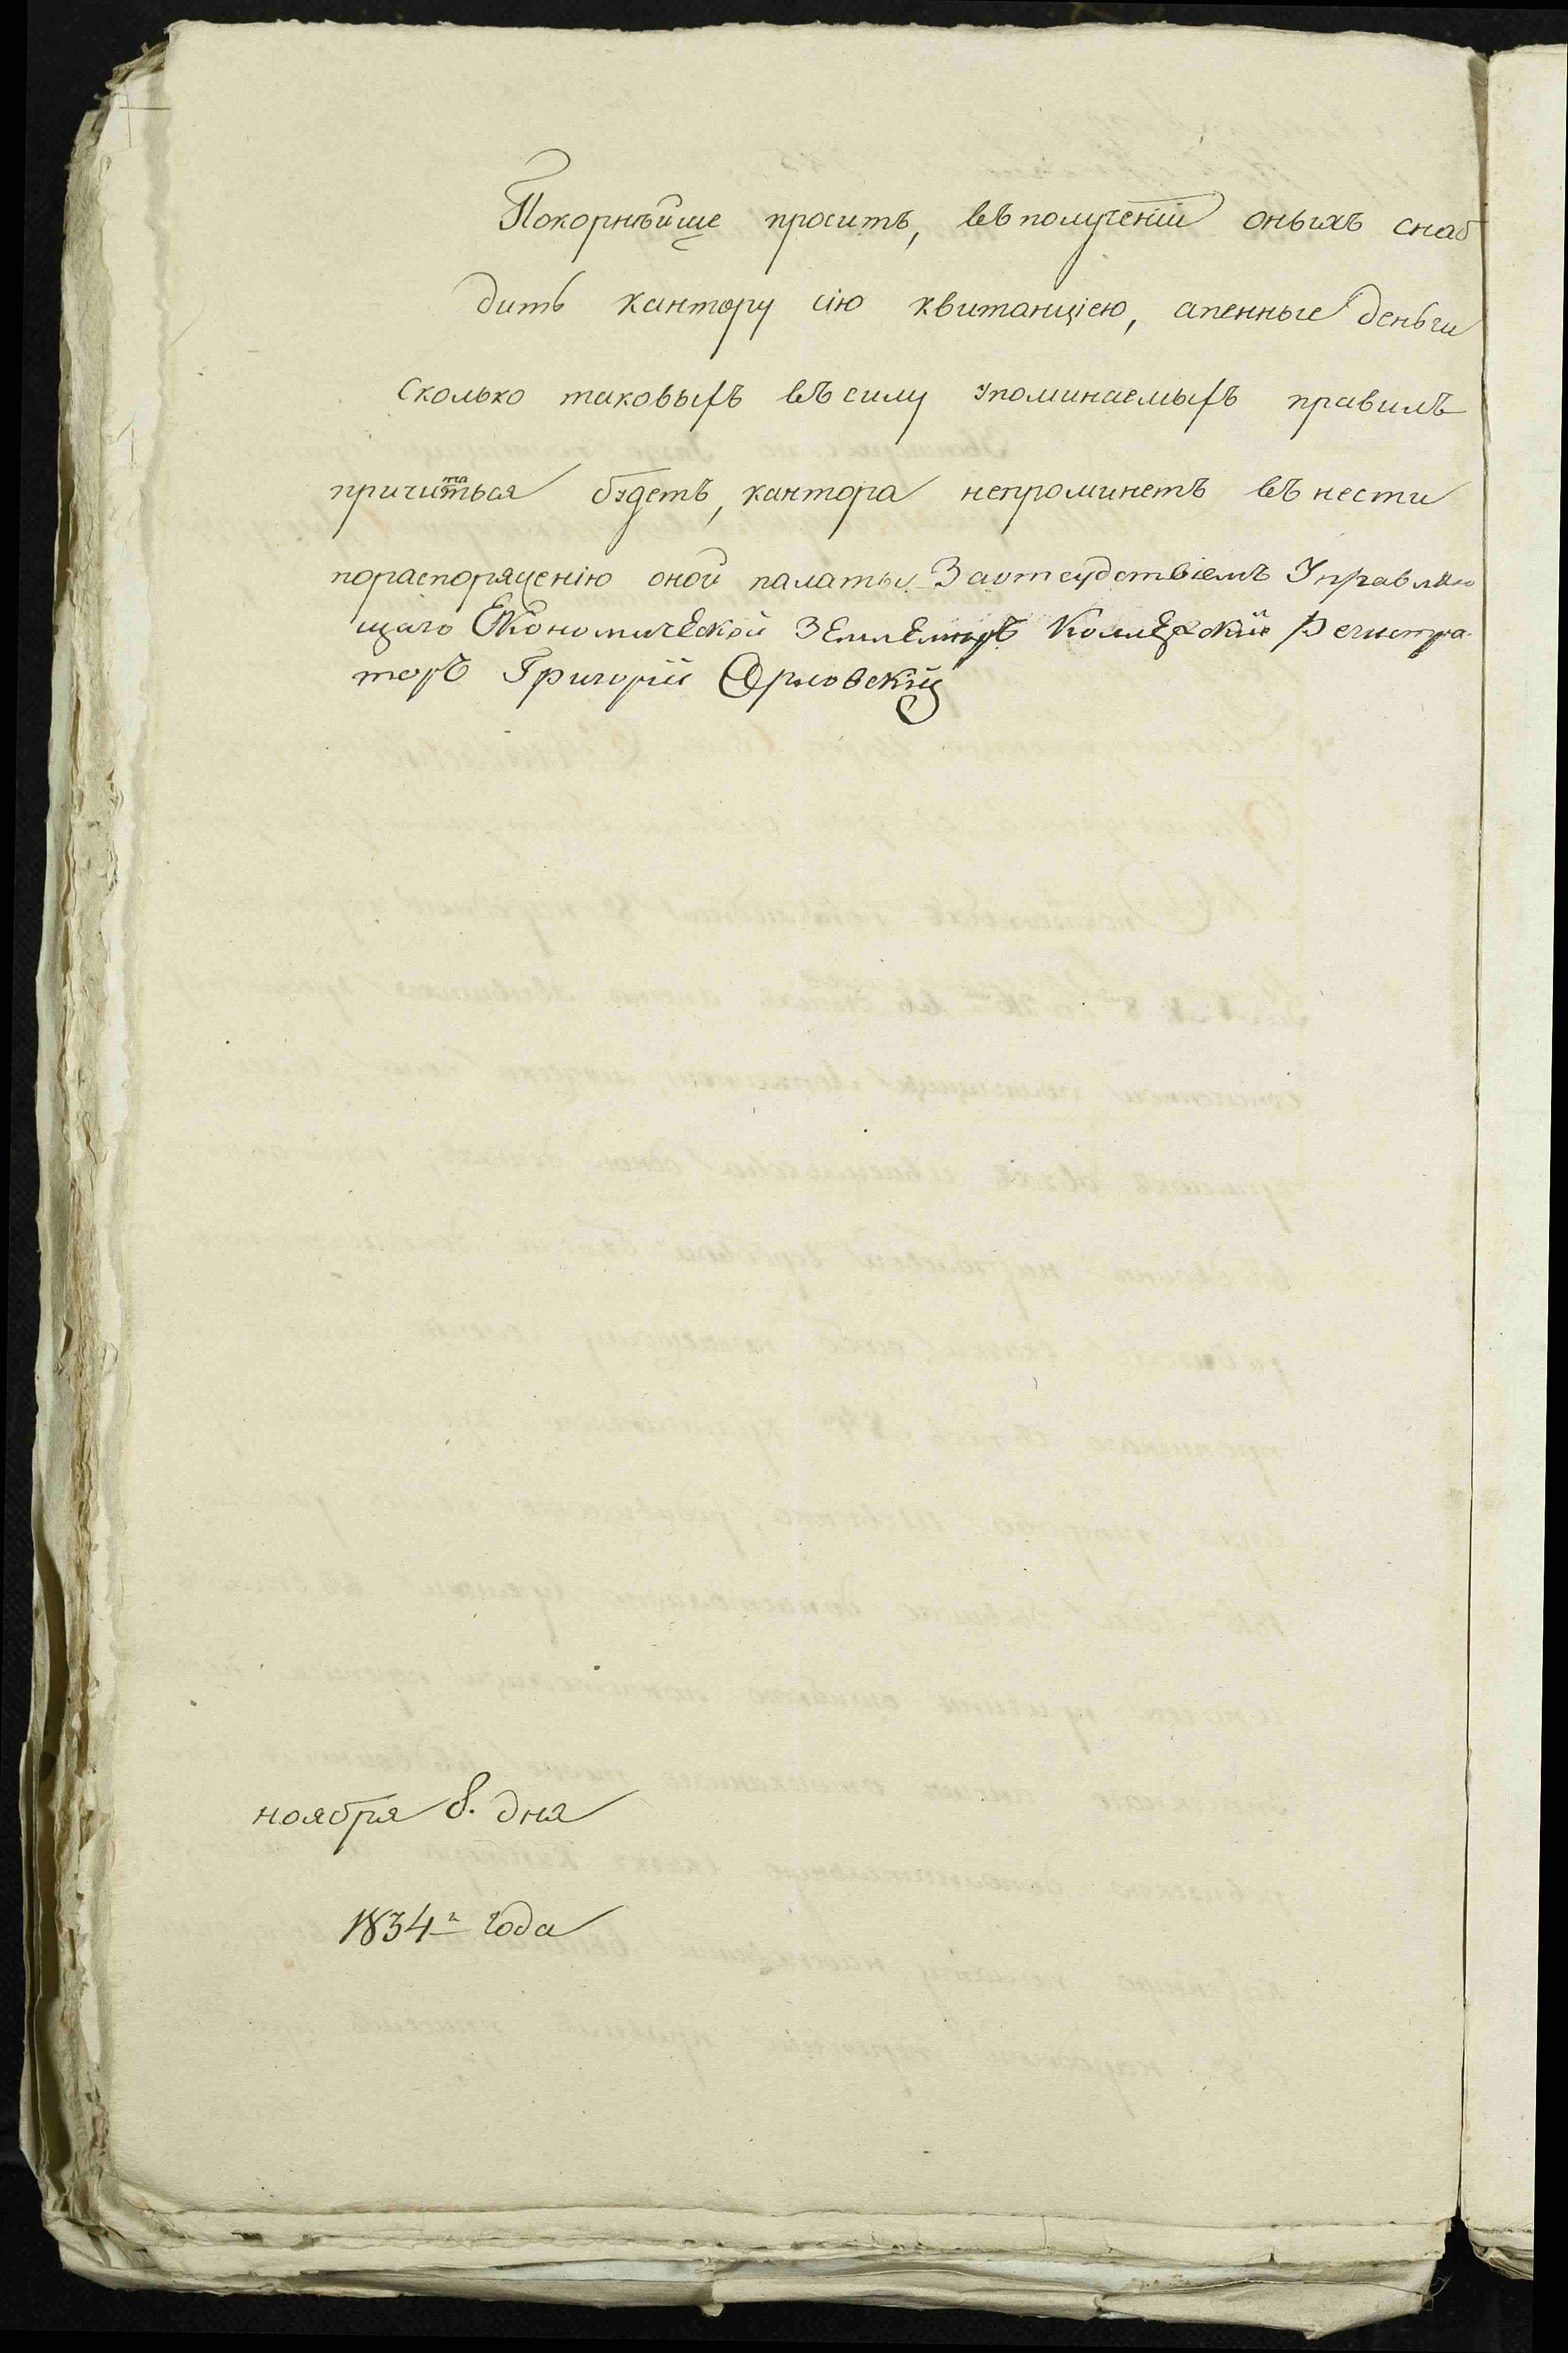 Покорнѣйше проситъ, въполученіи оныхъ снаб
дить кантору сію квитанціею, апенные деньги
сколько таковыхъ въсилу упоминаемыхъ правилъ
причитаться будетъ, кантора непроминетъ въ нести
пораспоряженію оной палаты. Заотсудствіемъ Управляю
щаго Економической Землемеръ Коллежскій Регистра
торъ Григорій Орловскій
ноября 8. дня
1834г года